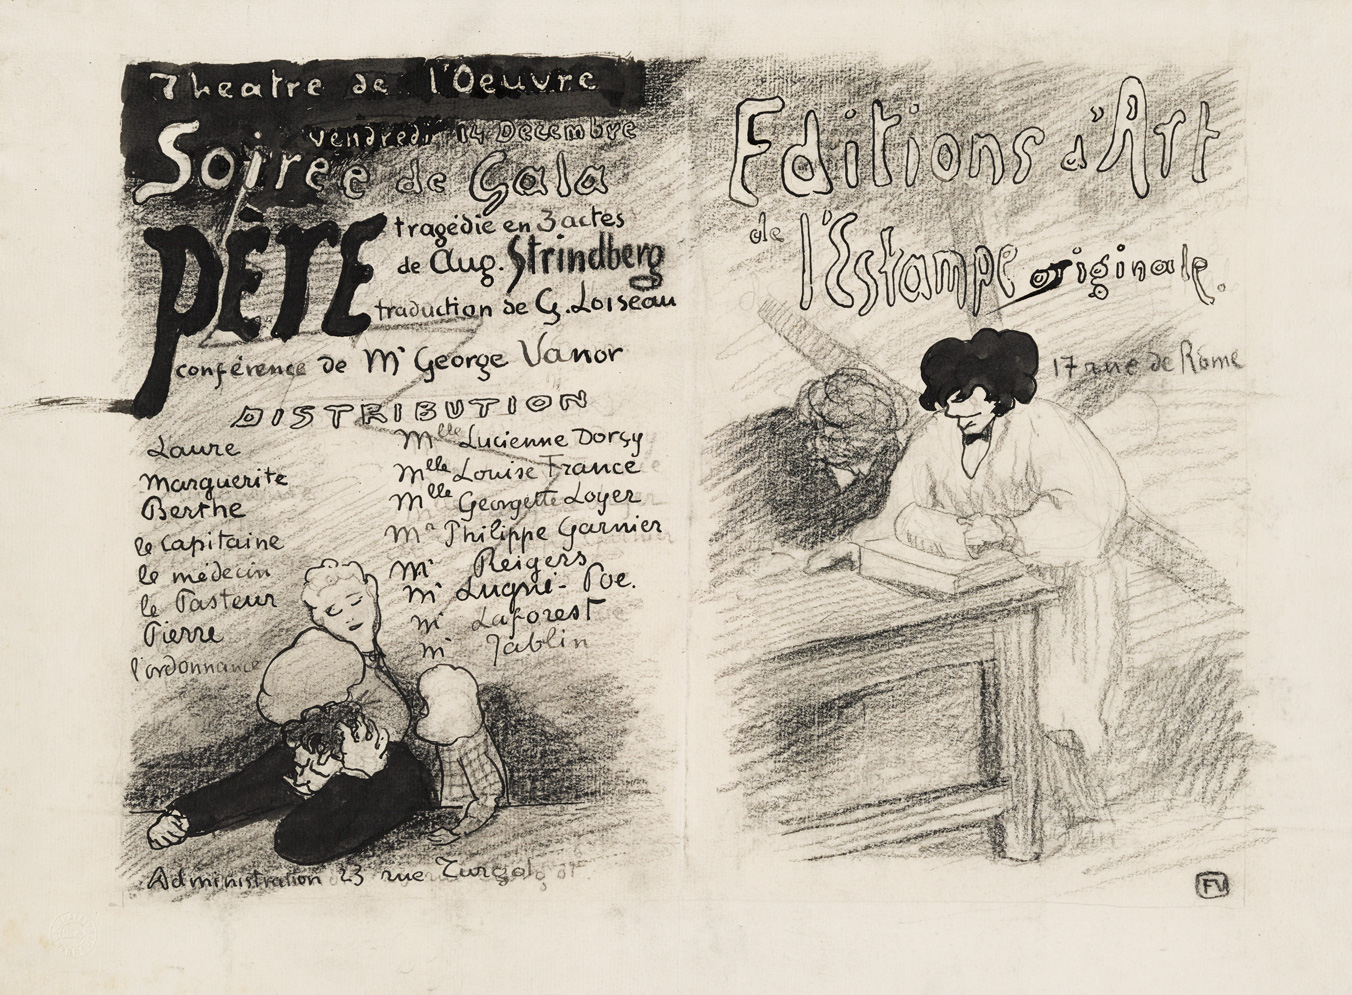 Theatre de l'Oeuvre
vendredi 14 Decembre
Soiree de Gala
PÈRE
tragédie en 3 actes
de Aug. Strindberg
traduction de G. Loiseau
conférence de Mr George Vanor
DISTRIBUTION
Laure Mlle Lucienne Dorsy
Marguerite Mlle Louise France
Berthe Mlle Georgette Loyer
le Capitaine Mr Philippe Garnier
le médecin Mr Reigers
le Pasteur Mr Lugné-Poe.
Pierre Mr Laforest
l'ordonnance Mr Jablin
Administration 23 rue Turgot
Editions d'Art
de l'Estampe originale.
17 rue de Rome
FV